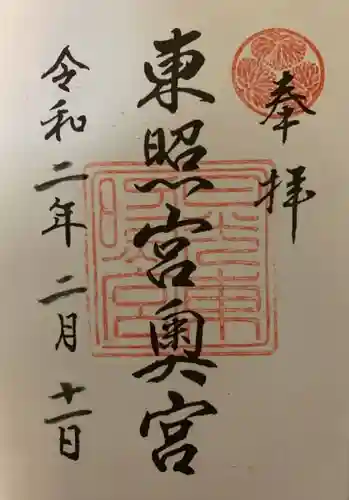 奉拝
東照宮奥宮
令和二年二月十一日